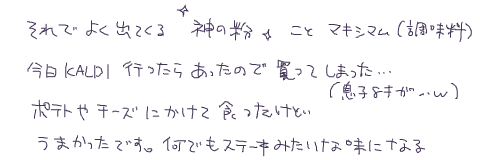 それで よく出てくる ✧神の粉✧ こと マキシマム(調味料)
今日 KALDI 行ったら あったので 買って しまった…
(息子8才が…w)
ポテトや チーズ にかけて 食ったけど
うまかったです。何でもステーキみたいな味になる